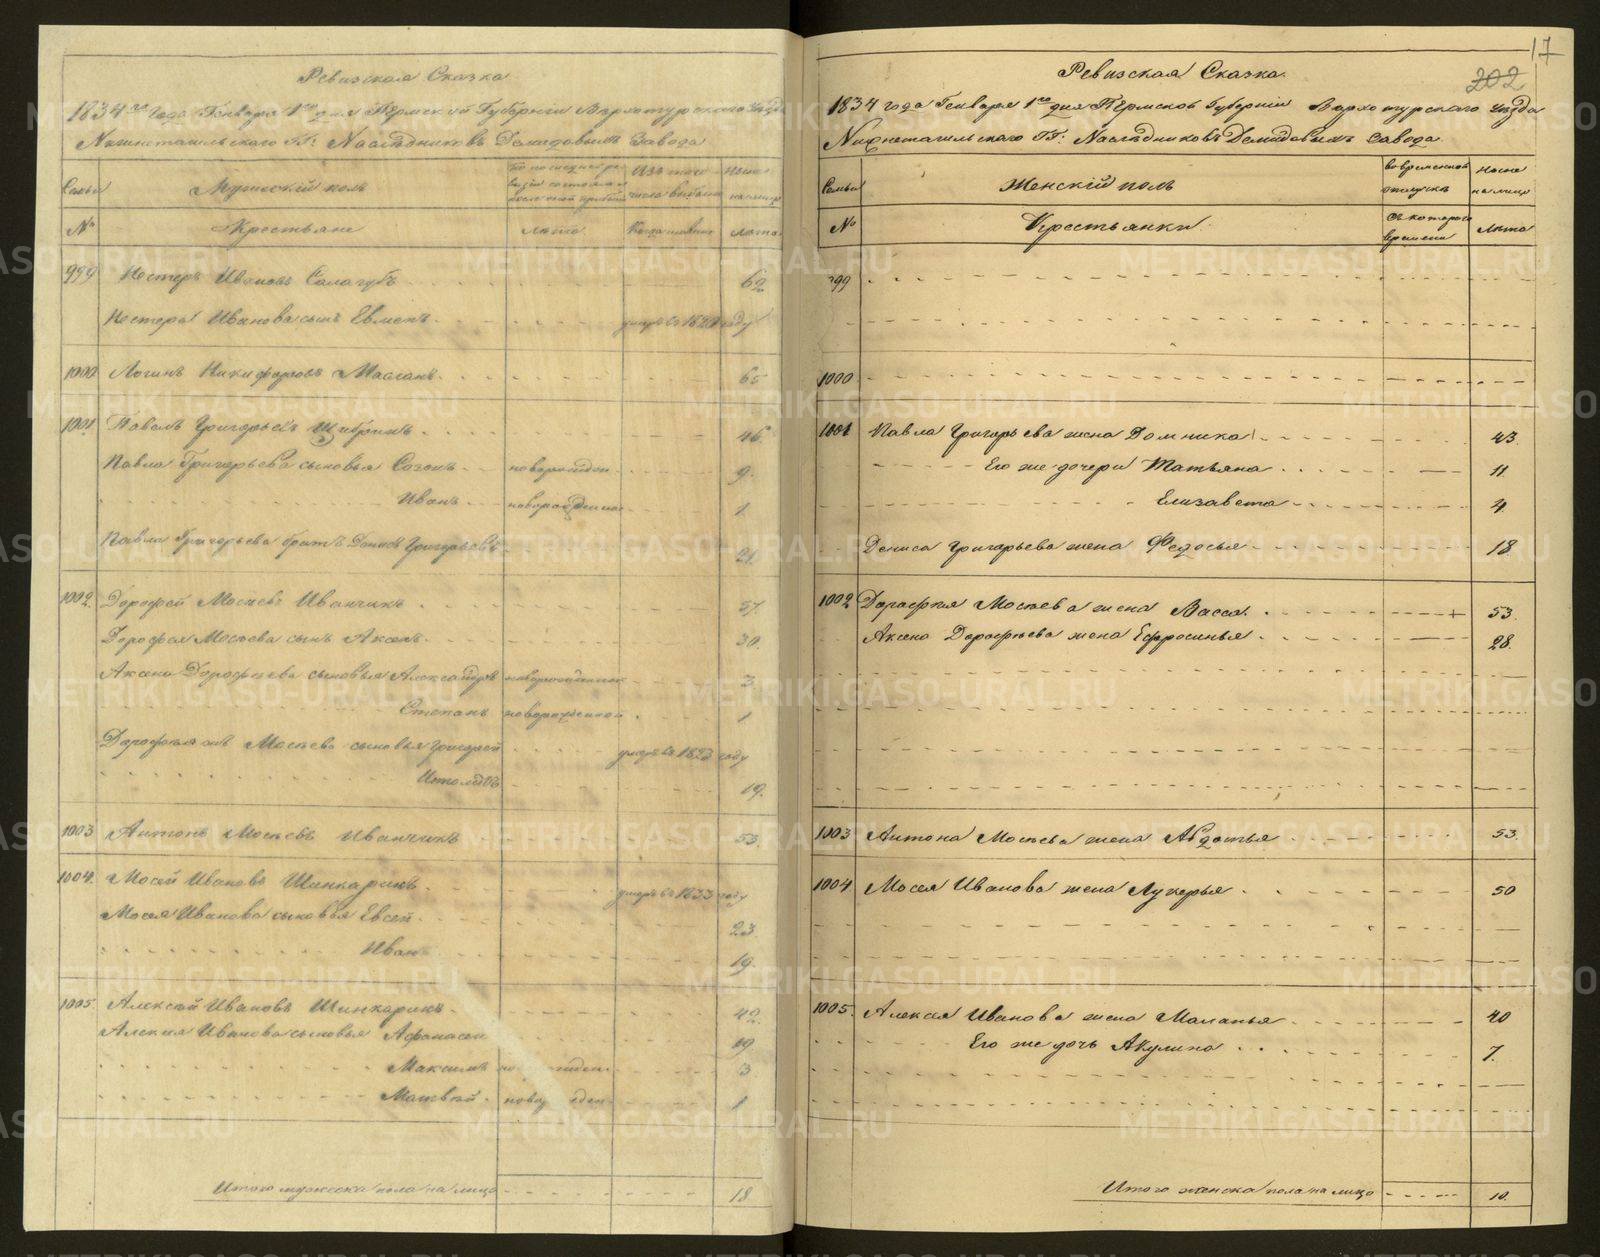 Ревизская Сказка
1834 го Года Генваря 1го дня Пермской Губернии Верхотурского Уезда
Нижнетагильскаго ГГ: Наследниковъ Демидовыхъ Завода
Семьи Мужескій полъ По последней ревизіи состояло и после оной прибыло Изъ того числа выбыло Ныне на лицо
№ Крестьяне Лета Когда именно Лета
999 Нестеръ Ивановъ Салагубъ 62
Нестера Иванова сынъ Евменъ умре въ 1827 году
1000 Логинъ Никифоровъ Масланъ 65
1001 Павелъ Григорьевъ Шибринъ 46
Павла Григорьева сыновья Созонъ новорожден. 9.
Иванъ новорожденной 1
Павла Григорьева братъ Денисъ Григорьевъ 21
1002. Дорофей Мосеевъ Иванчикъ 57
Дорофея Мосеева сынъ Аксенъ 30.
Аксена Дорофеева сыновья Александръ новорожденной 3
Степанъ новорожденной 1
Дорофея Мосеева сыновья Григорей умре въ 1823 году
19.
1003 Антонъ Мосеевъ Иванчикъ 53.
1004. Мосей Ивановъ Шинкаринъ умре въ 1833 году
Мосея Иванова сыновья Евсей 23
Иванъ 19.
1005. Алексей Ивановъ Шинкаринъ 42.
Алексея Иванова сыновья Афонасей 19
Максимъ 3.
Матвей 1
Итого мужеска пола на лицо 18
17
202
Ревизская Сказка
1834 года Генваря 1го дня Пермской Губерніи Верхотурскаго уезда
Нижнетагильскаго ГГ: Наследниковъ Демидовыхъ завода
Семьи Женскій полъ во временной отлучке Ныне на лицо
№ Крестьянки Съ котораго времени Лета
999
1000
1001 Павла Григорьева жена Домника 43.
Его же дочери Татьяна 11
Елизавета 4
Дениса Григорьева жена Федосья 18.
1002 Дорофея Мосеева жена Васса. 53.
Аксена Дорофеева жена Ефросинья 28.
1003 Антона Мосеева жена Авдотья 53.
1004 Мосея Иванова жена Лукерья 50
1005. Алексея Иванова жена Маланья 40
Его же дочь Акулина 7.
Итого женска пола на лицо 10.
METRIKI.GASO-URAL.RU